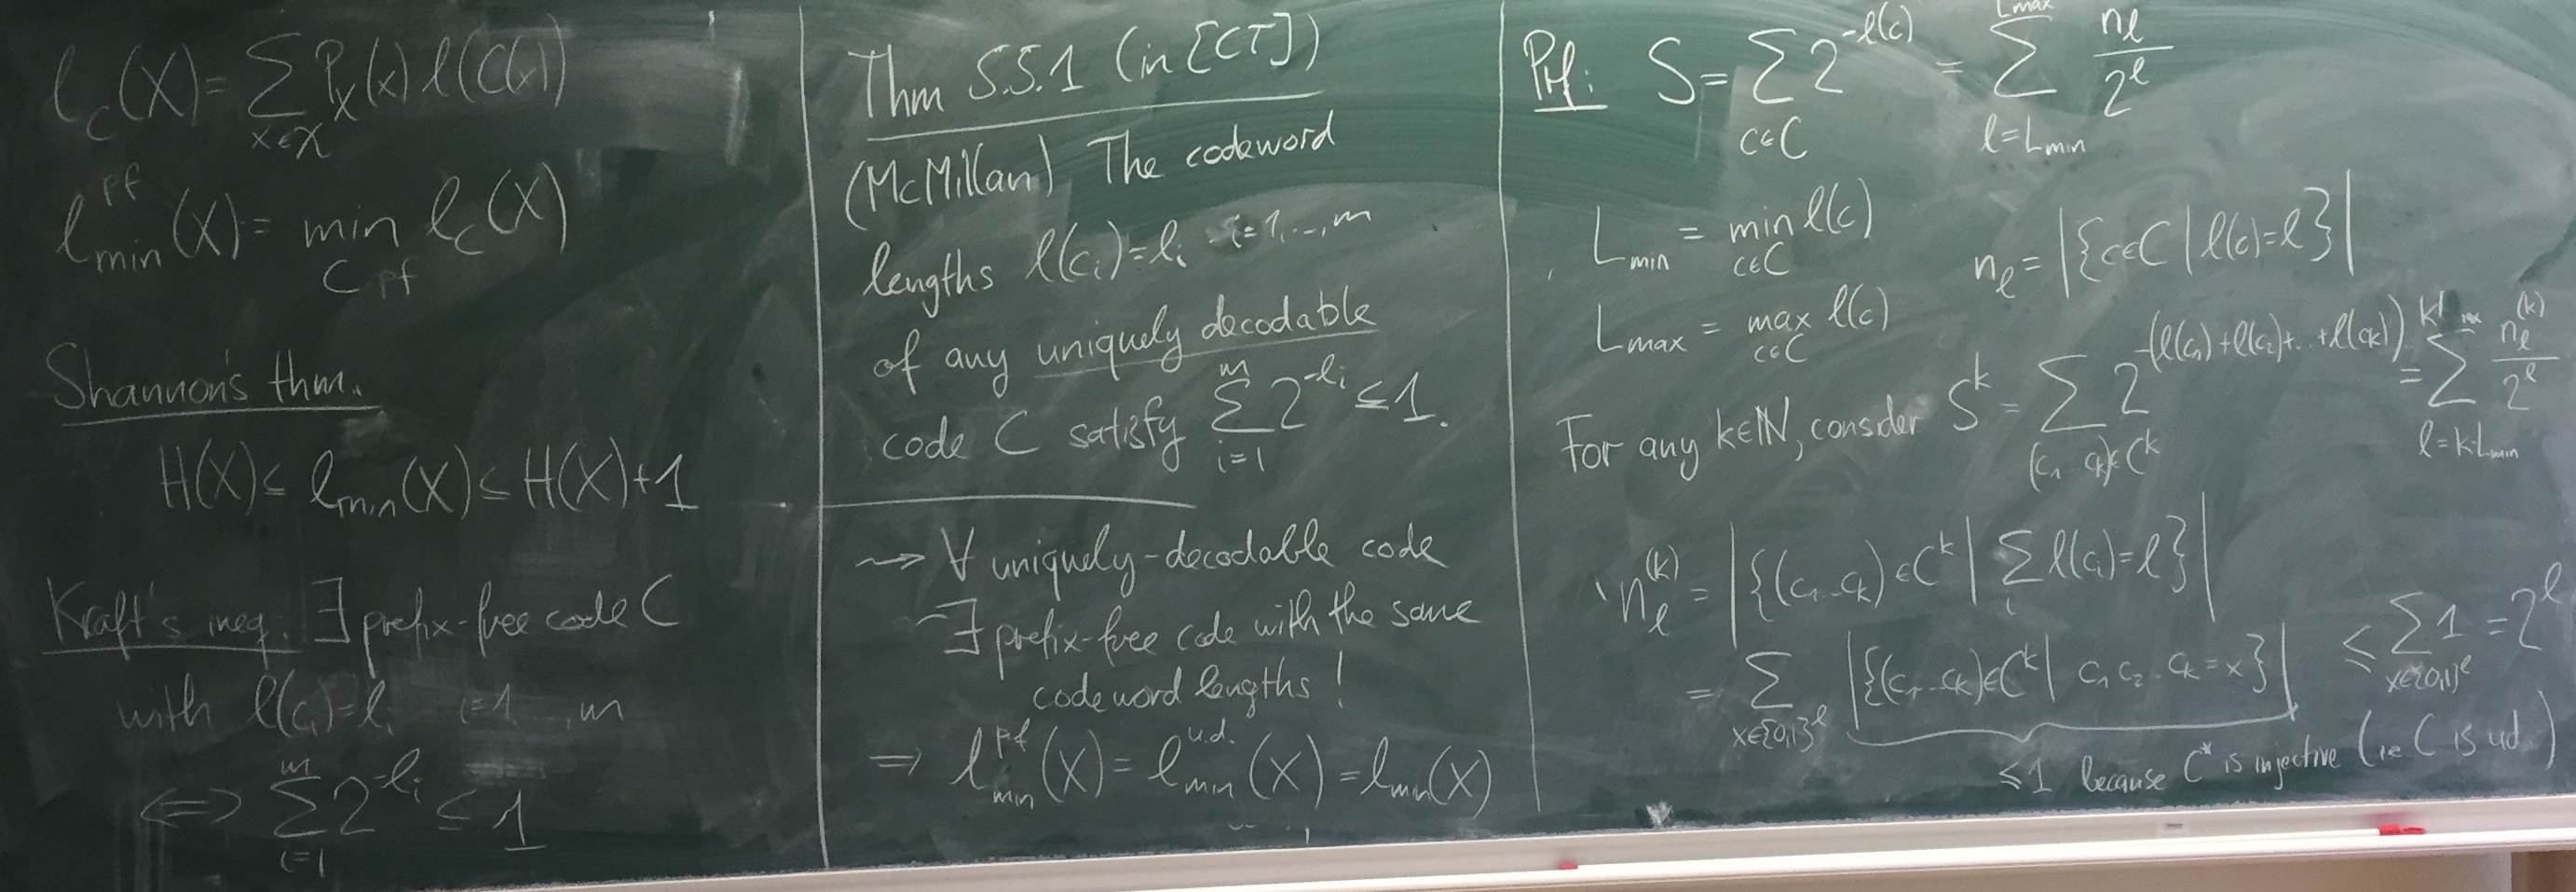 ℓ_C(X) = ∑_{x∈𝒳} P_X(x) ℓ(C(x))
ℓ_min^{pf}(X) = min_{C pf} ℓ_C(X)
Shannon's thm.
H(X) ≤ ℓ_min(X) ≤ H(X)+1
Kraft's ineq. ∃ prefix-free code C
with ℓ(c_i)=ℓ_i i=1...,m
⟺ ∑_{i=1}^{m} 2^{-ℓ_i} ≤ 1
Thm 5.5.1 (in [CT])
(McMillan) The codeword
lengths ℓ(c_i)=ℓ_i i=1,...,m
of any uniquely decodable
code C satisfy ∑_{i=1}^{m} 2^{-ℓ_i} ≤ 1.
⇝ ∀ uniquely-decodable code
∃ prefix-free code with the same
codeword lengths!
⇒ ℓ_min^{pf}(X) = ℓ_min^{u.d.}(X) = ℓ_min(X)
Prf: S = ∑_{c∈C} 2^{-ℓ(c)} = ∑_{ℓ=L_min}^{L_max} n_ℓ / 2^ℓ
L_min = min_{c∈C} ℓ(c)
n_ℓ = |{c∈C | ℓ(c)=ℓ}|
L_max = max_{c∈C} ℓ(c)
For any k∈ℕ, consider S^k = ∑_{(c_1...c_k)∈C^k} 2^{-(ℓ(c_1)+ℓ(c_2)+...+ℓ(c_k))} = ∑_{ℓ=k·L_min}^{k L_max} n_ℓ^{(k)} / 2^ℓ
n_ℓ^{(k)} = |{(c_1...c_k)∈C^k | ∑_i ℓ(c_i)=ℓ}|
= ∑_{x∈{0,1}^ℓ} |{(c_1...c_k)∈C^k | c_1 c_2...c_k = x}| ≤ ∑_{x∈{0,1}^ℓ} 1 = 2^ℓ
≤1 because C* is injective (i.e. C is ud.)